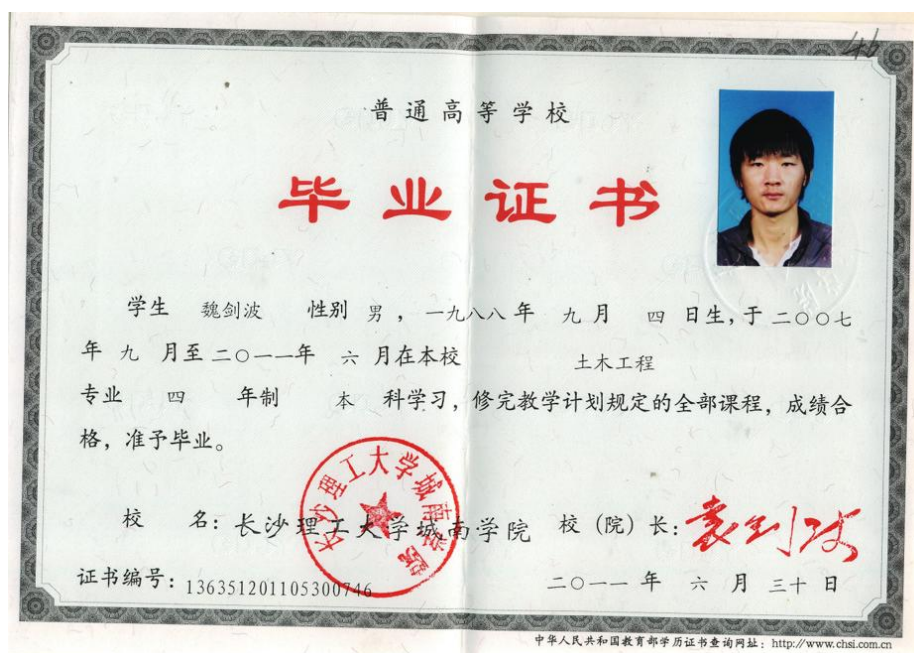 46
普通高等学校
毕业证书
学生 魏剑波 性别 男 ,一九八八年 九 月 四 日生,于二〇〇七
年 九 月至二〇一一年 六 月在本校 土木工程
专业 四 年制 本 科学习,修完教学计划规定的全部课程,成绩合
格,准予毕业。
长沙理工大学城南学院
校 名:长沙理工大学城南学院 校(院)长:
证书编号:136351201105300746 二〇一一 年 六 月 三十 日
中华人民共和国教育部学历证书查询网址:http://www.chsi.com.cn